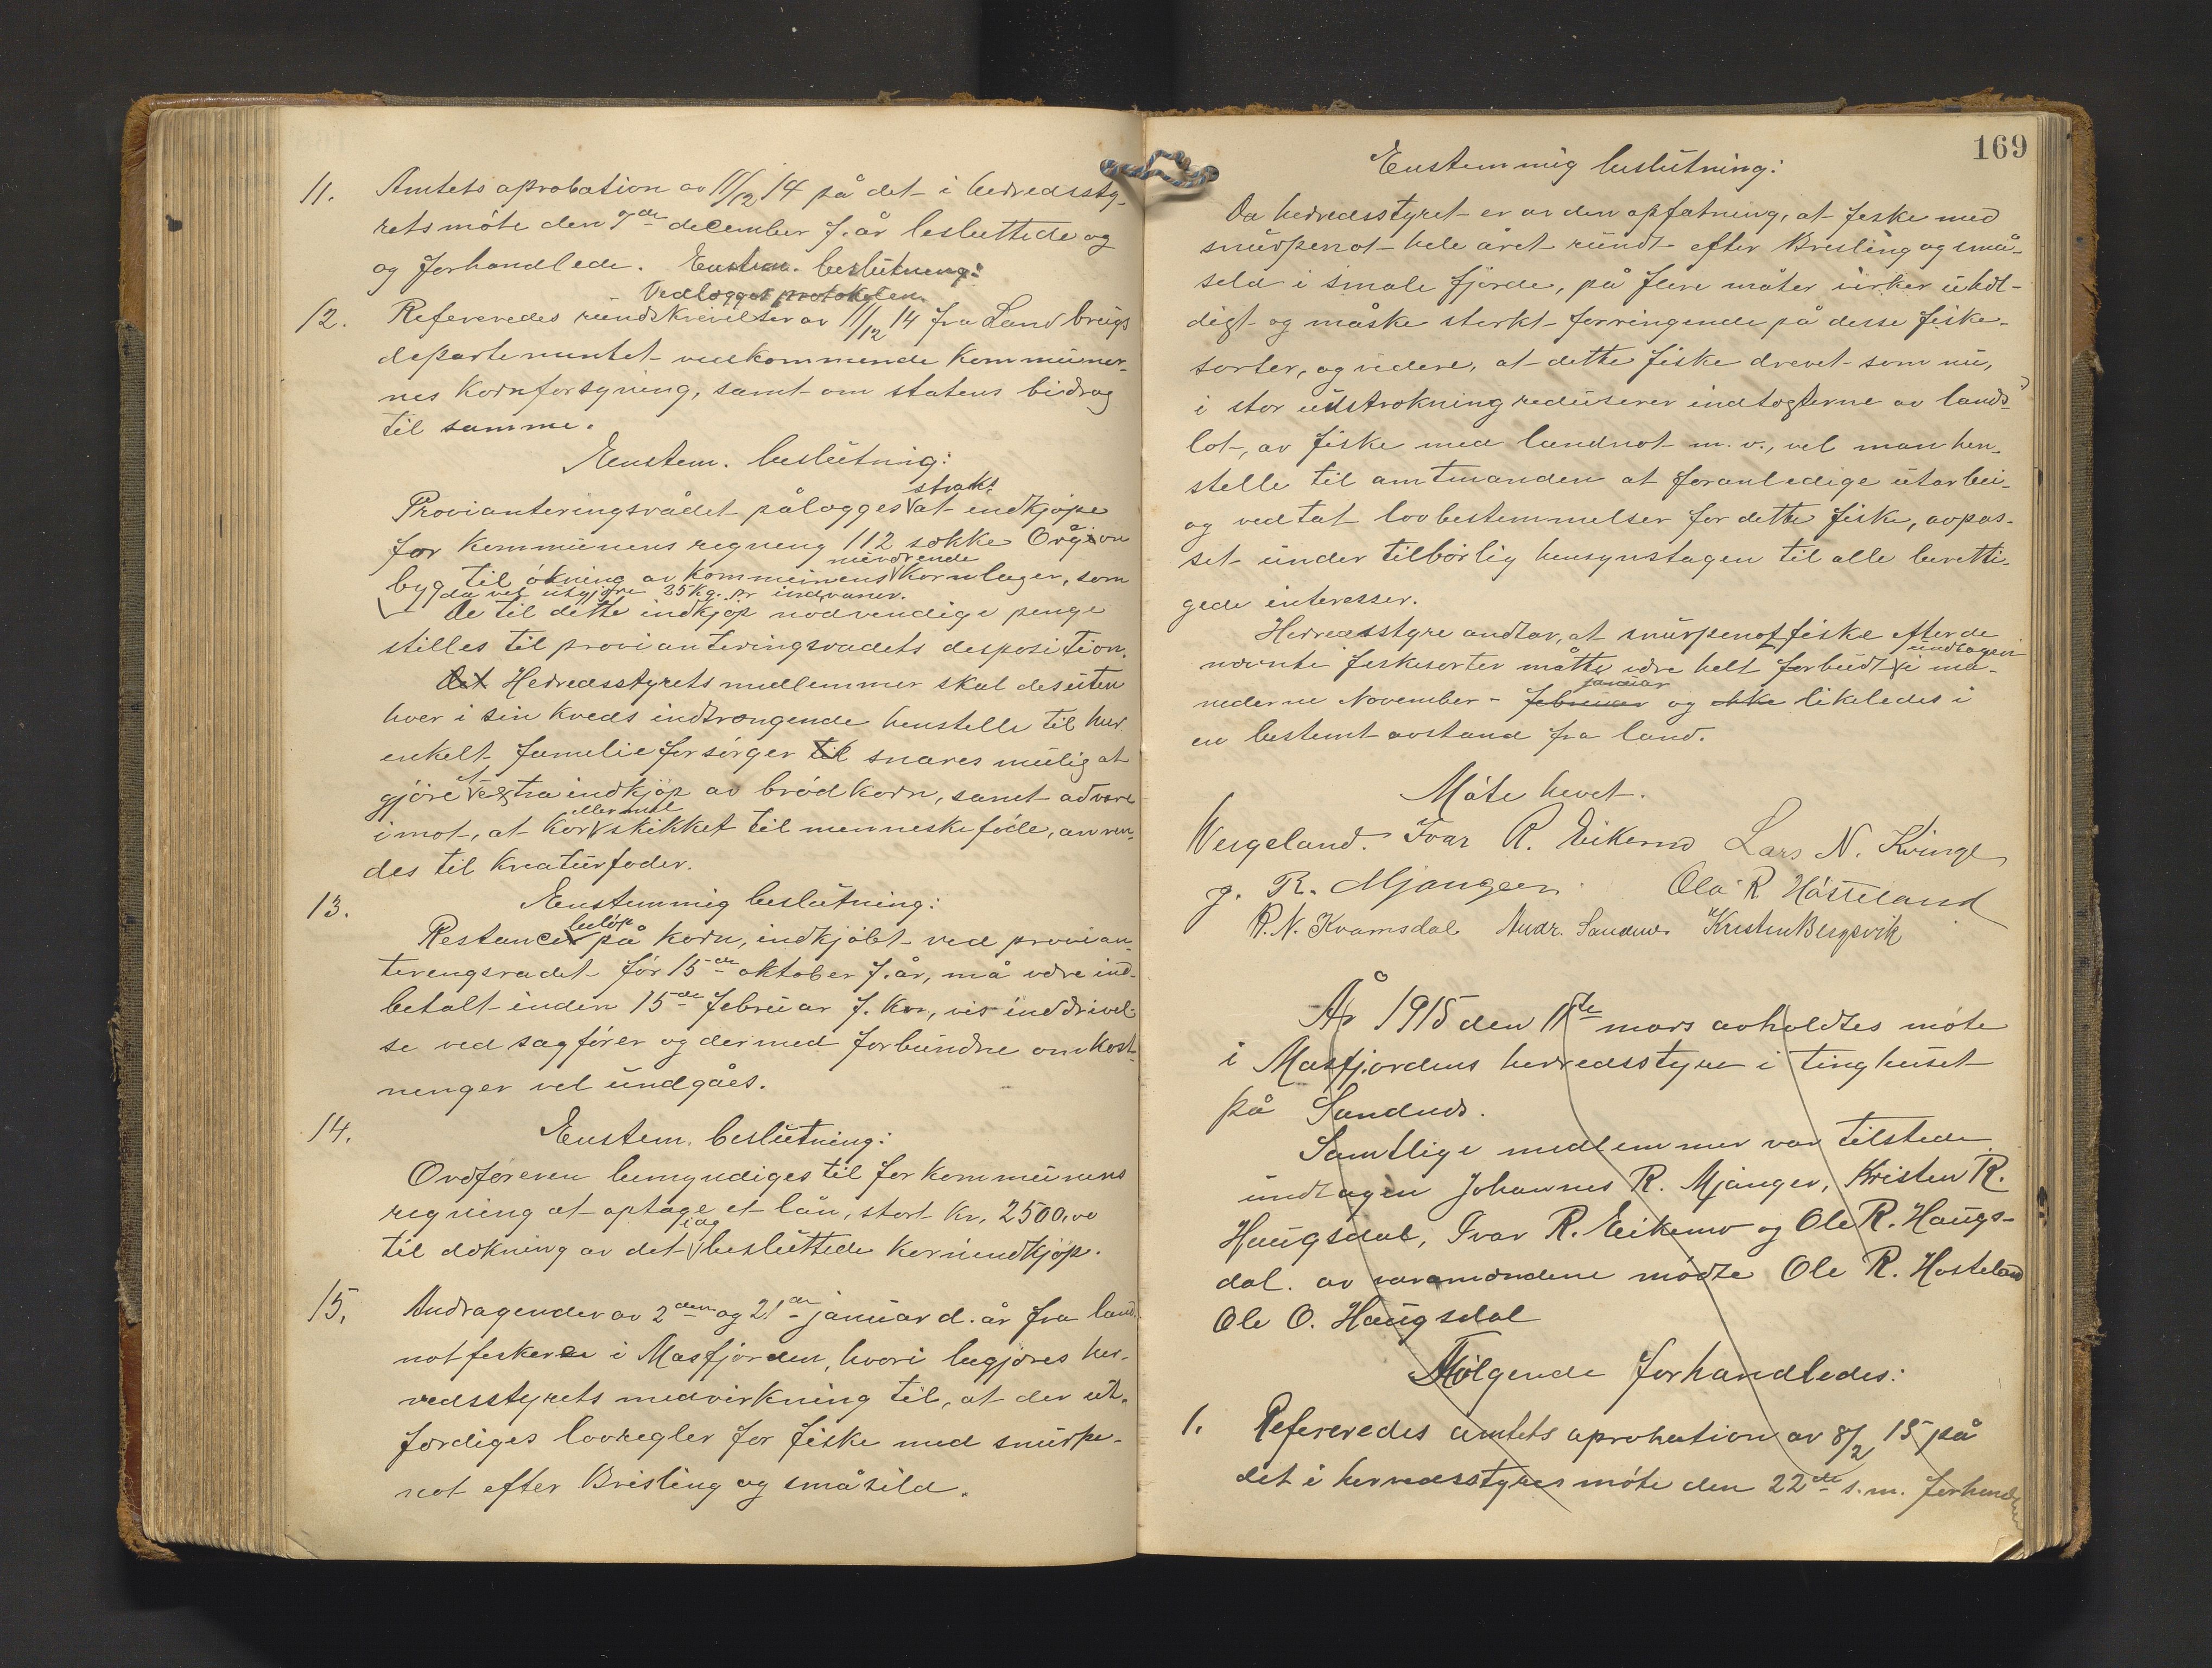 11. Amtets aprobation av 11/12 14 på det i herredssty-
rets møte den 7de december f. år besluttede og
og forhandlede. Enstem. beslutning:
Vedlægges protokolen.
12. Refereredes rundskrivelser av 11/12 14 fra Landbrugs
departementet vedkommende kommuner-
nes kornforsyning, samt om statens bidrag
til samme.
Eenstem. beslutning:
straks
Provianteringsrådet pålægges at indkjøpe
for kommunens regning 112 sække Orgion
nuværende
byg til økning av kommunens kornlager, som
da vil utgjøre 25 kg. pr indvaaner.
De til dette indkjøp nødvendige penge
stilles til provianteringsraadets desposition.
Det Herredsstyrets medlemmer skal desuten
hver i sin kreds indtrængende henstelle til hver
enkelt familieforsørger til snares mulig at
gjøre extra indkjøp av brødkorn, samt advare
eller mel
imot, at korn skikket til menneskeføde, anven-
des til kreaturfoder.
13. Eenstemmig beslutning:
beløp
Restancer på korn, indkjøbt ved provian-
teringsradet før 15de oktober f. år, må være ind-
betalt inden 15de februar f. kom, vis inddrivel-
se ved sagfører og dermed forbundne omkost-
ninger vel undgåes.
14. Enstem. beslutning:
Ordføreren bemyndiges til for kommunens
regning at optage et lån, stort kr. 2500,00
idag
til dækning av det besluttede kornindkjøp.
15. Andragender av 2den og 21de januar d. år fra land-
notfiskere i Masfjorden, hvori begjæres her-
redsstyrets medvirkning til, at der ut-
færdiges lovregler for fiske med snurpe-
not efter Brisling og småsild.
169
Enstemmig beslutning:
Da herredsstyret er av den opfatning, at fiske med
snurpenot hele året rundt efter Bresling og små-
seld i smale fjorde, på flere måter virker uhel-
digt og måske sterkt forringende på desse fiske-
sorter, og videre, at dette fiske drevet som nu,
i stor utstrækning reduserer indtægterne av lands-
lot, av fiske med landnot m. v., vel man hen-
stelle til amtmanden at foranledige utarbei-
og vedtat lovbestemmelser for dette fiske, avpas-
set under tilbørlig hensynstagen til alle beretti-
gede interesser.
Herredsstyre andtar, at snurpenotfiske efter de
undtagen
nævnte fiskesorter måtte være helt forbudt i må-
januar
nederne November - februar og ikke likeledes i
en bestemt avstand fra land.
Møte hevet.
Wergeland. Ivar R. Eikemo Lars N. Kvinge
J. R. Mjangeen Ola R Hosteland
R. N. Kvamsdal Andr. Sandnes Kristen Bergsvik
År 1915 den 11te mars avholdtes møte
i Masfjordens herredsstyre i tinghuset
på Sandnes.
Samtlige medlemmer var tilstede
undtagen Johannes R. Mjanger, Kristen R.
Haugsdal, Ivar R. Eikemo og Ole R. Haugs-
dal. av varamændene mødte Ole R. Hosteland
Ole O. Haugsdal
Følgende forhandledes:
1. Refereredes amtets aprobation av 8/2 15 på
det i herredsstyres møte den 22de s. m. forhand